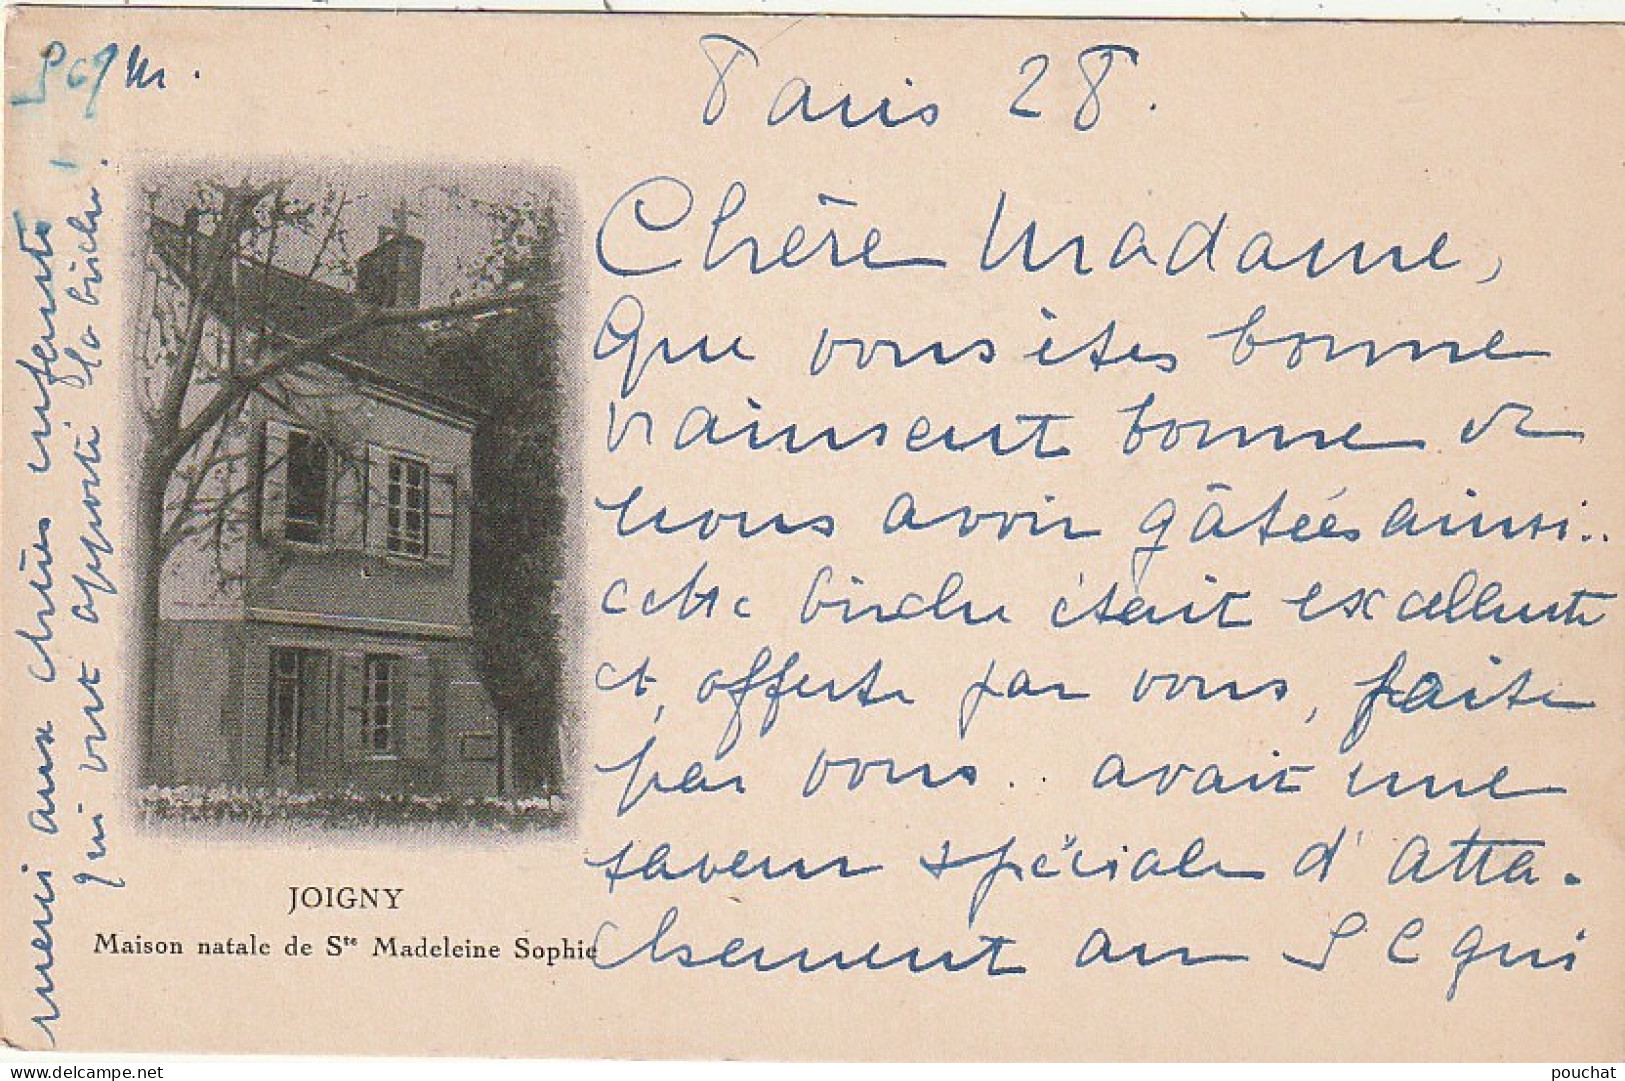 Paris 28.
Chère Madame,
Que vous êtes bonne
vraiment bonne de
nous avoir gâtées ainsi..
cette bûche était excellente
et, offerte par vous, faite
par vous.. avait une
saveur spéciale d'atta-
chement au S C qui
merci aux chères enfants
qui ont apporté la bûche.
JOIGNY
Maison natale de Ste Madeleine Sophie
delcampe.net
pouchat